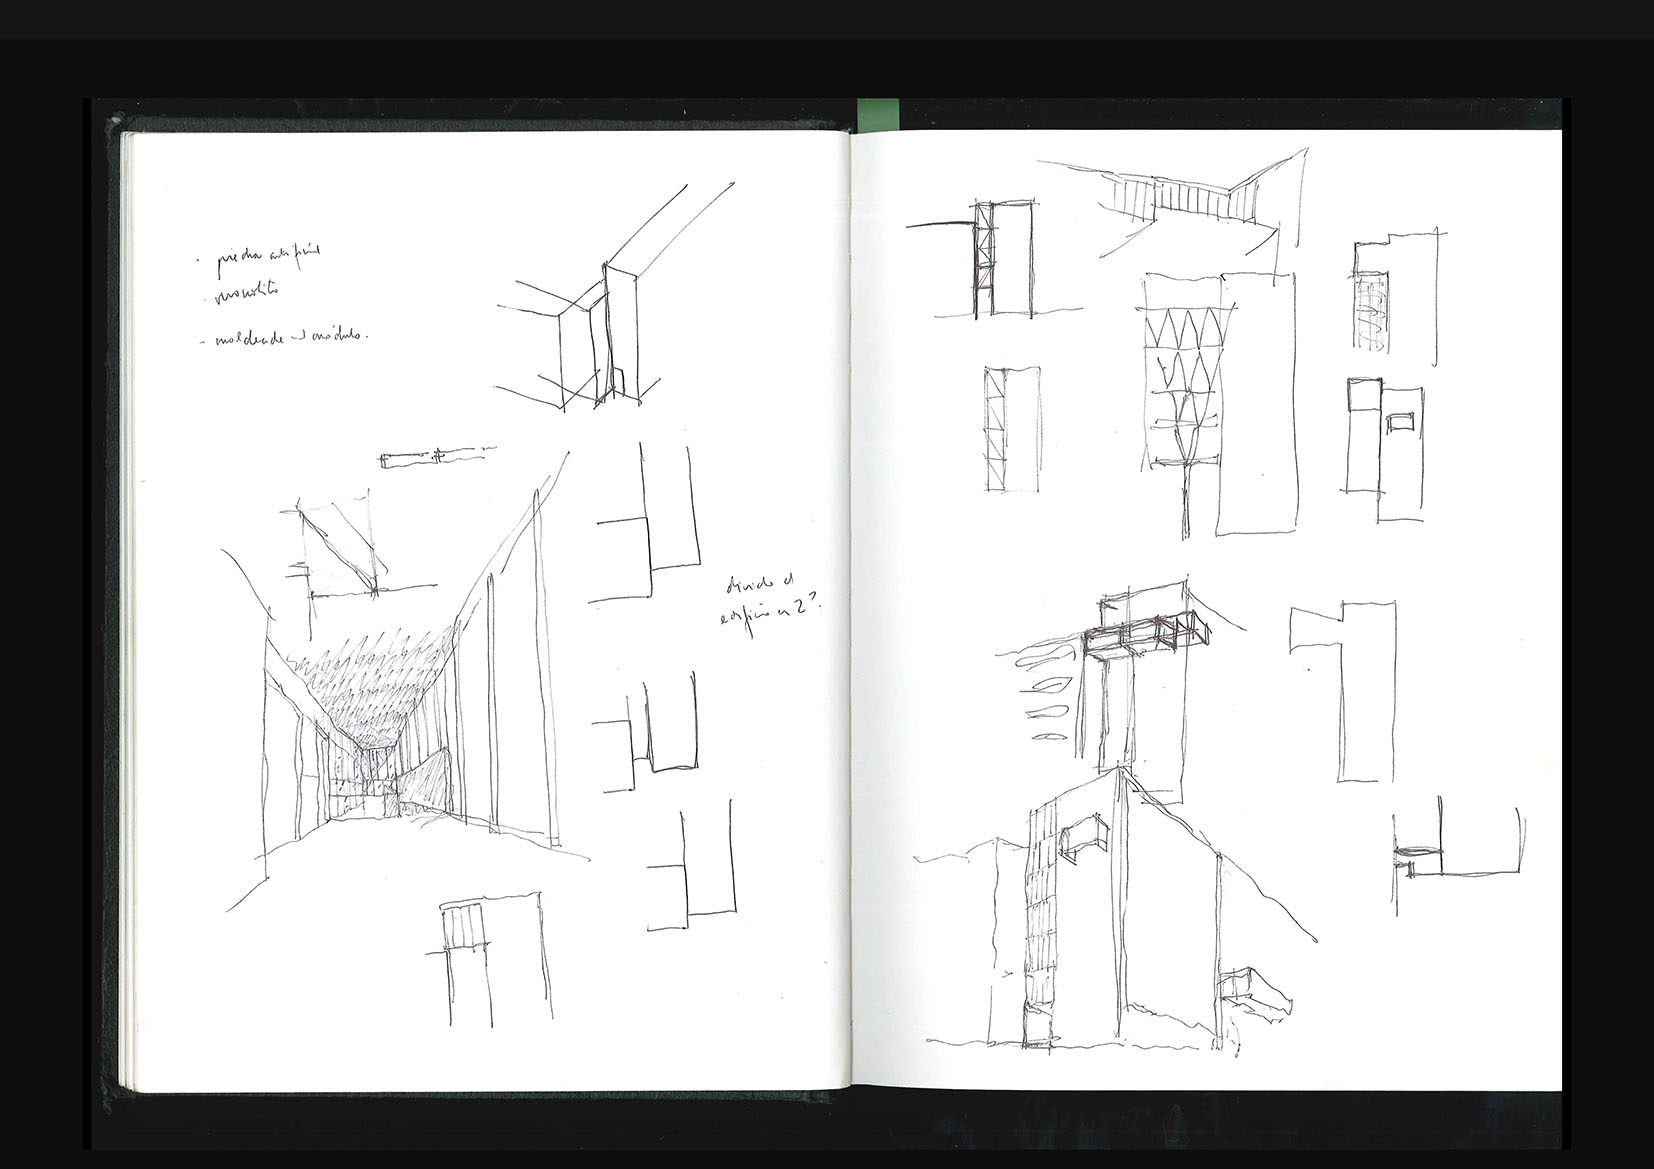 - piedra artificial
- monolito
- moldeada → módulo.
divido el
edificio en 2?